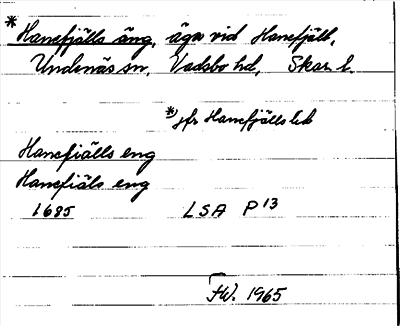 * Hanefjälls äng, äga vid Hanefjäll,
Undenäs sn, Vadsbo hd, Skar. l.
* jfr Hanefjällsleds
Hanefiälls eng
Hanefiäls eng
1685 LSA P 13
F.W. 1965